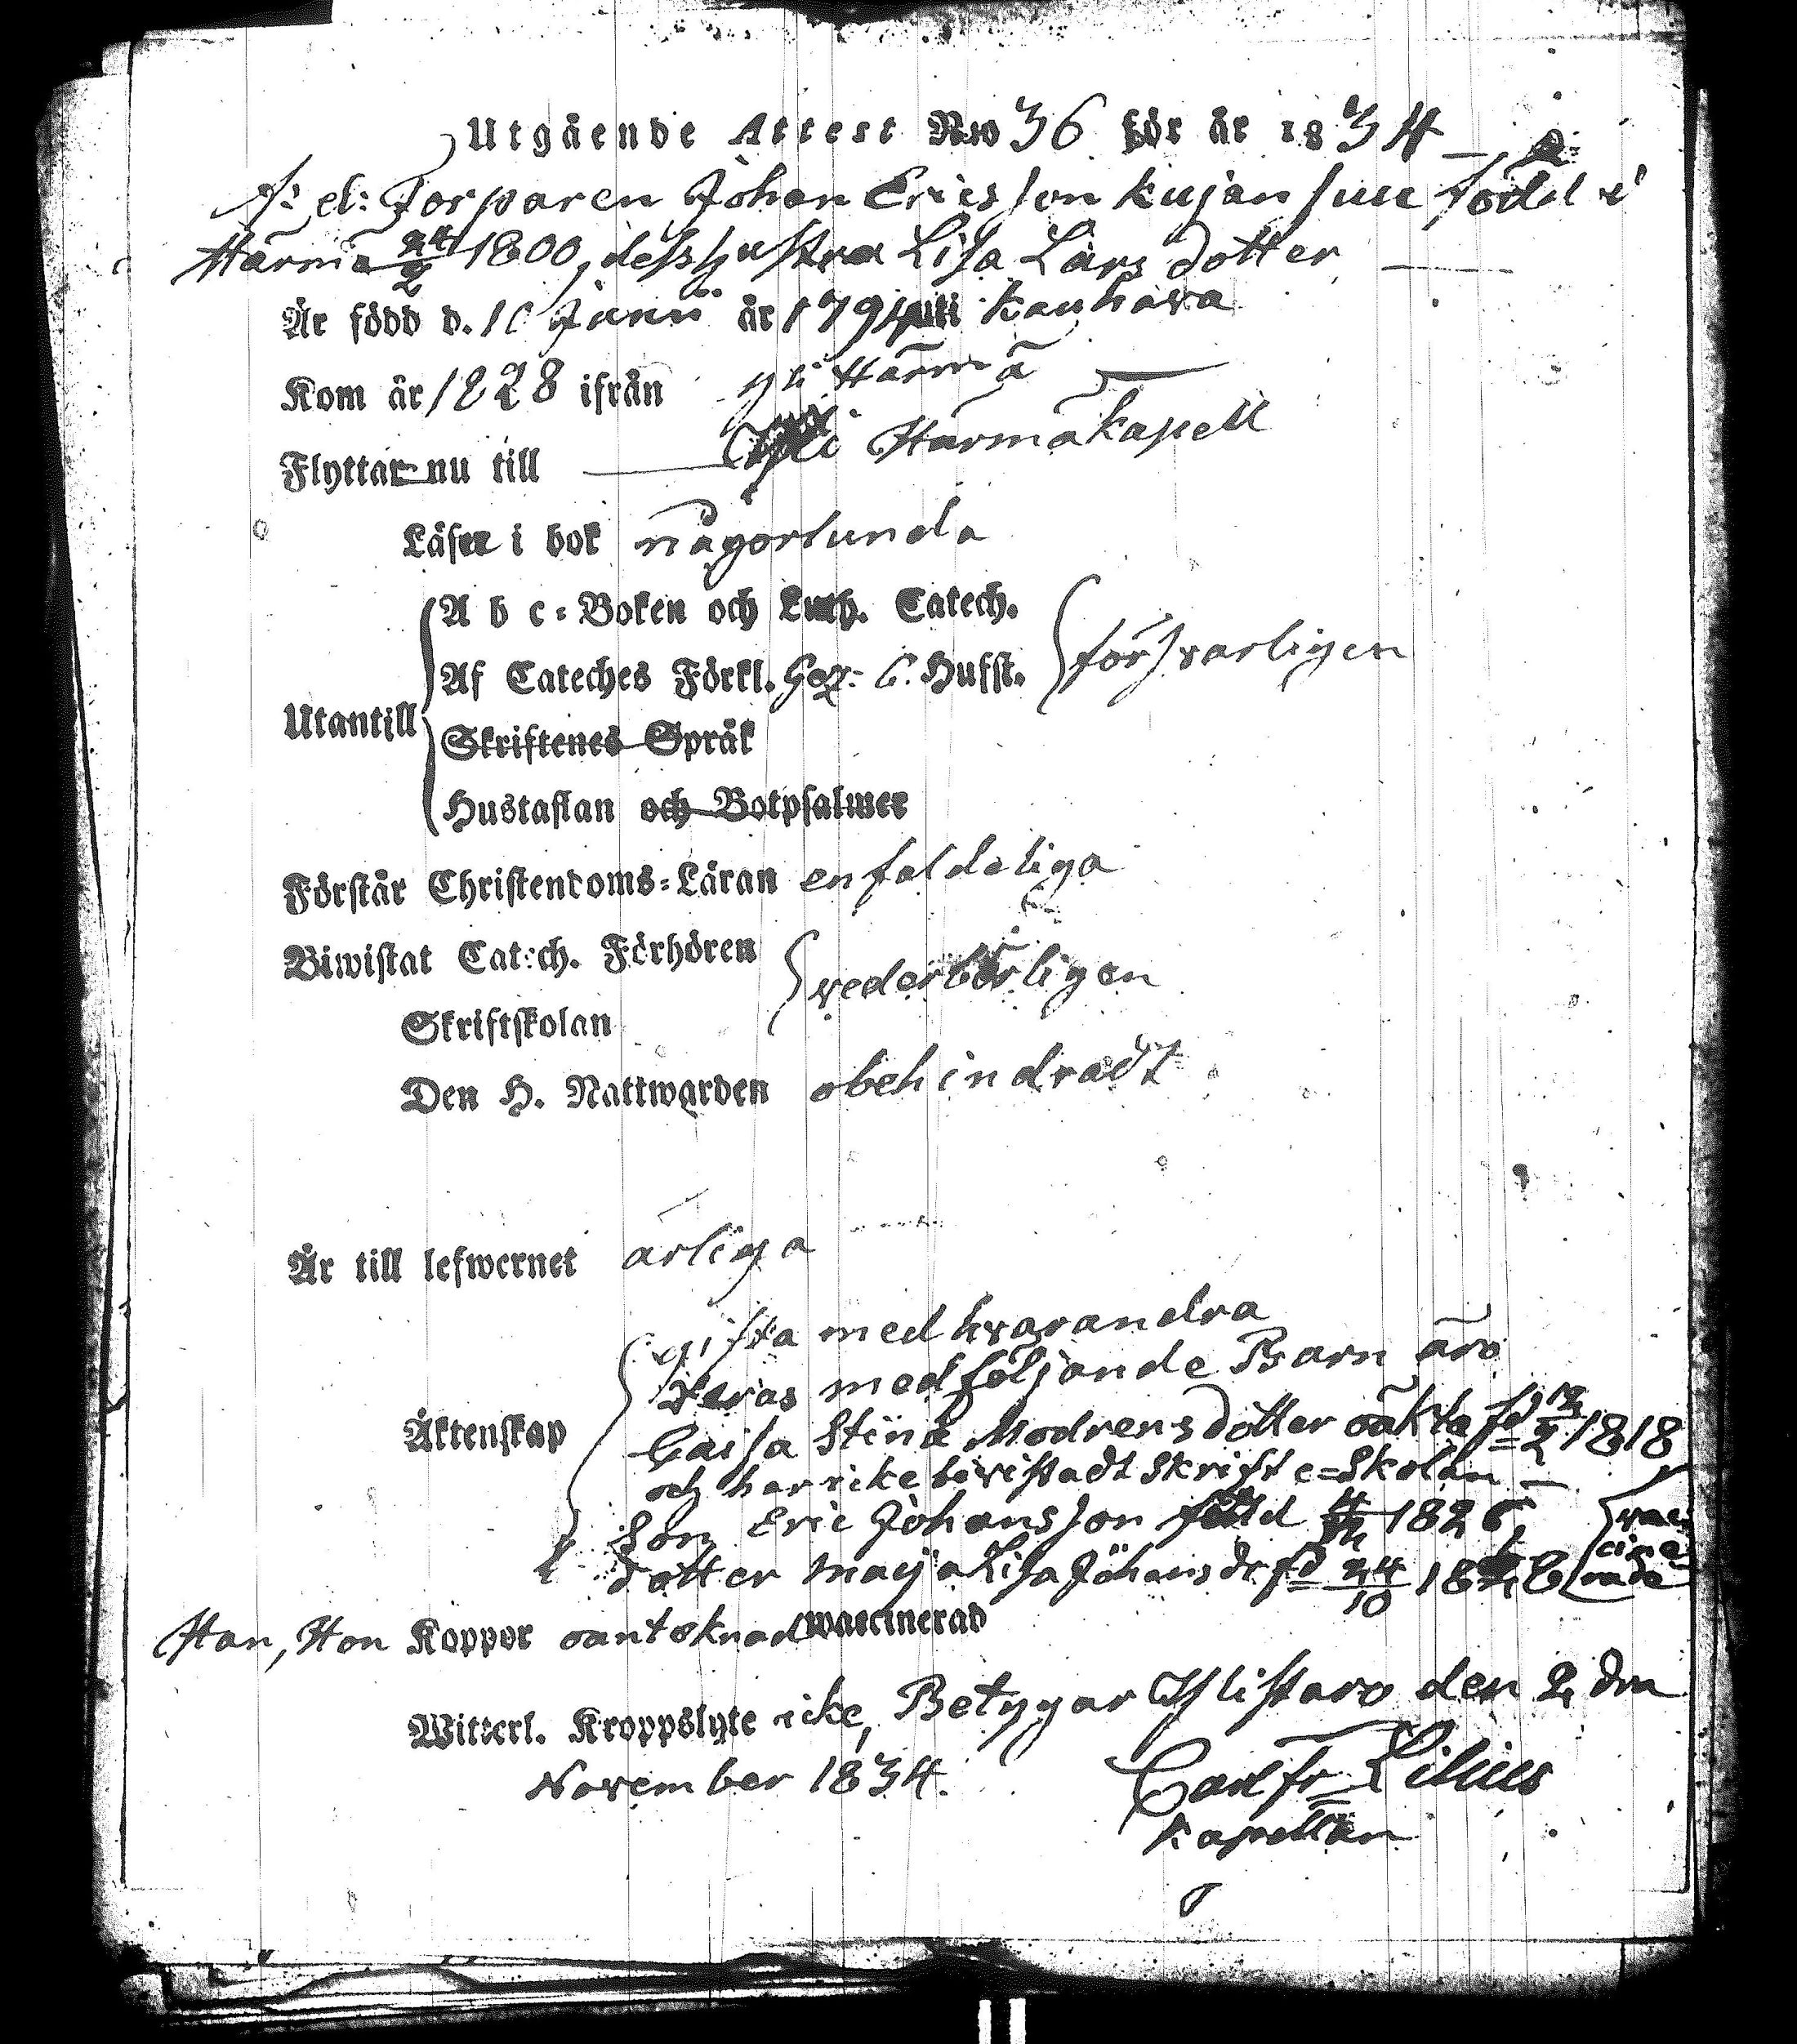 Utgående Attest N:o 36 för år 1834
f: d: Torparen Johan Ericsson Kujansuu född i
Härmä 24/2 1800, dess hustra Lisa Lars dotter
Är född d. 10 Junii år 1794 uti Kauhava
Kom år 1828 ifrån yli Härmä
Flyttar nu till Yli Härmä Kapell
Läser i bok någorlunda
A b c-Boken och Luth. Catech.
Af Cateches Förkl. Gez: 6. Hufst. försvarligen
Utantill
Skriftenes Språk
Hustaflan och Botpsalmer
Förstår Christendoms-Läran enfaldeliga
Biwistat Catech. Förhören
vederbörligen
Skriftskolan
Den H. Nattwarden obehindradt
Är till lefwernet ärliga
gifta med hvarandra
deras medföljande Barn äro
Äktenskap
Caisa Stina Modrens dotter oäkta fd 12/2 1818
och har icke bivistadt Skrifte=Skolan
Son Eric Johansson född 1826, vac
Dotter Maja Lisa Johansdr fd 24/10 cine
rade
Han, Hon Koppor oanteknad waccinerad
Witterl. Kroppslyte icke, Betygar Ylistaro den 2 dra
November 1834. Carl Fr Lilius
Kapellan